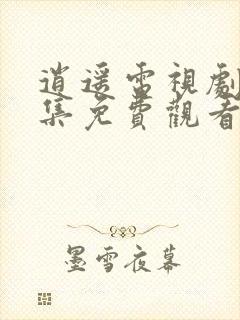 逍遥雷視劇
集免費觀看
墨雪夜幕